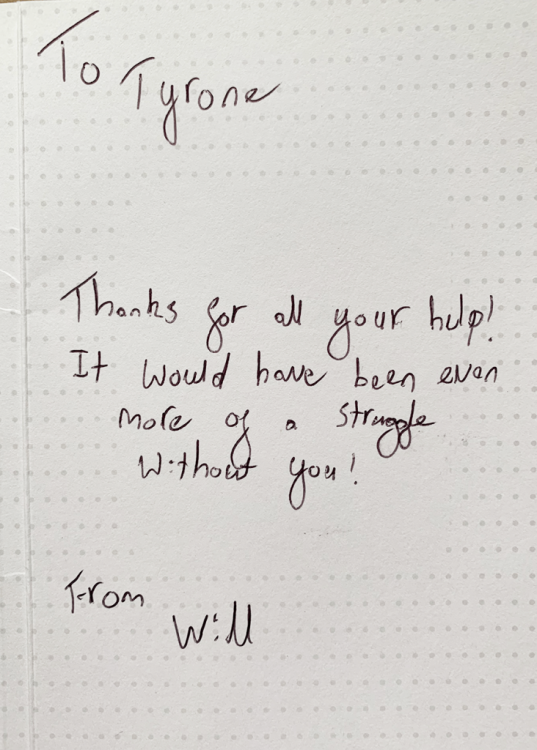 To
Tyrone
Thanks for all your help!
It would have been even
more of a struggle
without you!
From
Will